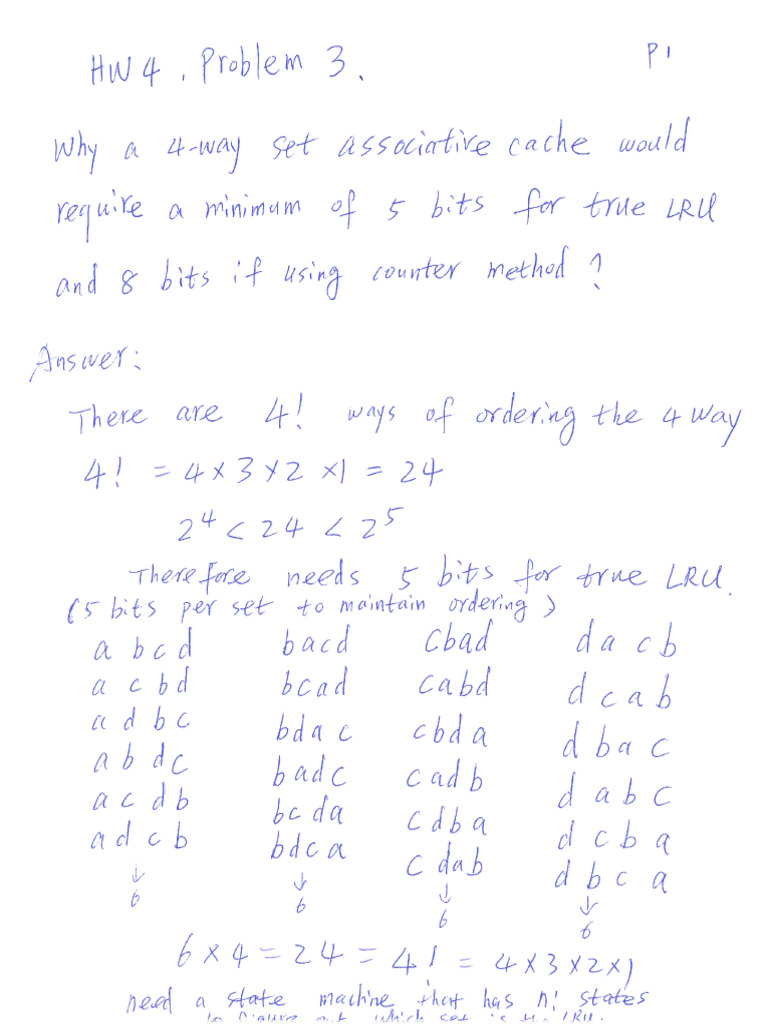 HW4. Problem 3. P1
Why a 4-way set associative cache would
require a minimum of 5 bits for true LRU
and 8 bits if using counter method?
Answer:
There are 4! ways of ordering the 4 way
4! = 4 × 3 × 2 × 1 = 24
2^4 < 24 < 2^5
Therefore needs 5 bits for true LRU.
(5 bits per set to maintain ordering)
a b c d bacd cbad d a c b
a c b d bcad cabd d c a b
a d b c bda c cbda d b a c
a b d c badc cadb d a b c
a c d b bcda cdba d c b a
a d c b bdca c dab d b c a
↓ ↓ ↓ ↓
6 6 6 6
6 × 4 = 24 = 4! = 4 × 3 × 2 × 1
need a state machine that has n! states
to figure out which set is the LRU.